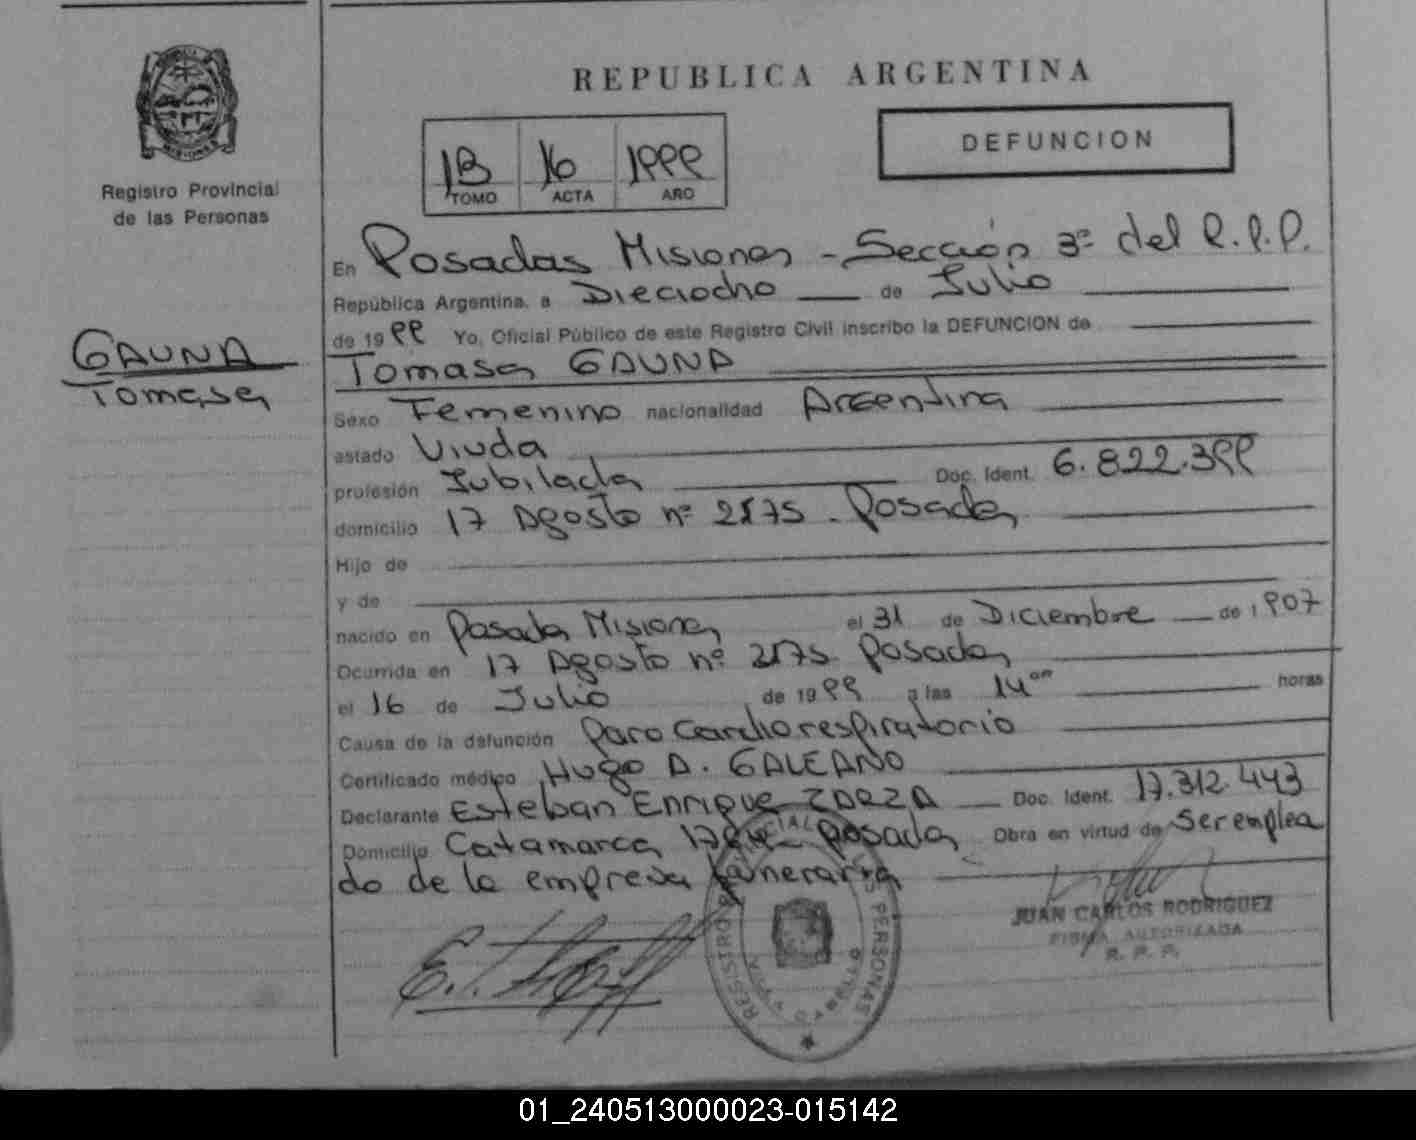 REPUBLICA ARGENTINA
DEFUNCION
1B 16 1999
TOMO ACTA AÑO
Registro Provincial
de las Personas
En Posadas Misiones - Sección 3ª del R.P.P.
República Argentina, a Dieciocho de Julio
de 1999 Yo, Oficial Público de este Registro Civil inscribo la DEFUNCION de
GAUNA
Tomasa
Tomasa GAUNA
Sexo Femenino nacionalidad Argentina
estado Viuda
profesión Jubilada Doc. Ident. 6.822.399
domicilio 17 Agosto nº 2175. Posadas
Hijo de
y de
nacido en Posadas Misiones el 31 de Diciembre de 1907
Ocurrida en 17 Agosto nº 2175. Posadas
el 16 de Julio de 1999 a las 14 horas
Causa de la defunción Paro Cardiorespiratorio
Certificado médico Hugo A. GALEANO
Declarante Esteban Enrique ZARZA Doc. Ident. 17.312.443
Domicilio Catamarca Posadas Obra en virtud de Ser emplea
do de la empresa funeraria
JUAN CARLOS RODRIGUEZ
FIRMA AUTORIZADA
R. P. P.
REGISTRO PROVINCIAL DE LAS PERSONAS
01_240513000023-015142